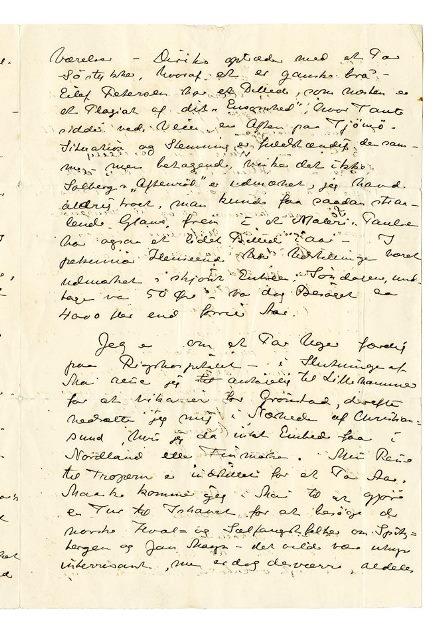 Værelse – Diriks optræder med et Par
Søstykke, hvoraf et er ganske bra –
Eilif Petersen har et Billede, som næsten er
et Plagiat af dit „Ensomhed", hvor Tante
sidder ved Veien en Aften paa Tjømø –
Situation og Stemning er fuldstændig den sam-
me, men betagende virker det ikke.
Solbergs „Aftenrøt" er udmærket, jeg havde
aldrig troet, man kunde faa saadan straa-
lende Glans frem i et Maleri. Paulsen
har ogsaa et lidet Billed iaar – I
pekuniær Henseende har Udstillingen været
udmærket, skjønt Entréen Søndagen, und-
tagen var 50 Øre – var dog Besøget ca
4000 fler end forrige Aar.
Jeg er om et Par Uger færdig
paa Rigshospitalet – i Slutningen af
Mai reiser jeg til Lillehammer
for at vikariere for Grønstad, derefter
nedsætter jeg mig i Nærheden af Christian-
sund, hvis jeg da intet Embede faar i
Nordland eller Finmarken. Min Reise
til Troperne er indstillet for et Par Aar.
Maaske kommer jeg i Mai til at gjøre
en Tur til Ishavet for at besøge de
norske Hval- og Sælfangstfelter om Spitz-
bergen og Jan Mayn – det vilde være uhyre
interessant, men er dog desværre, aldeles